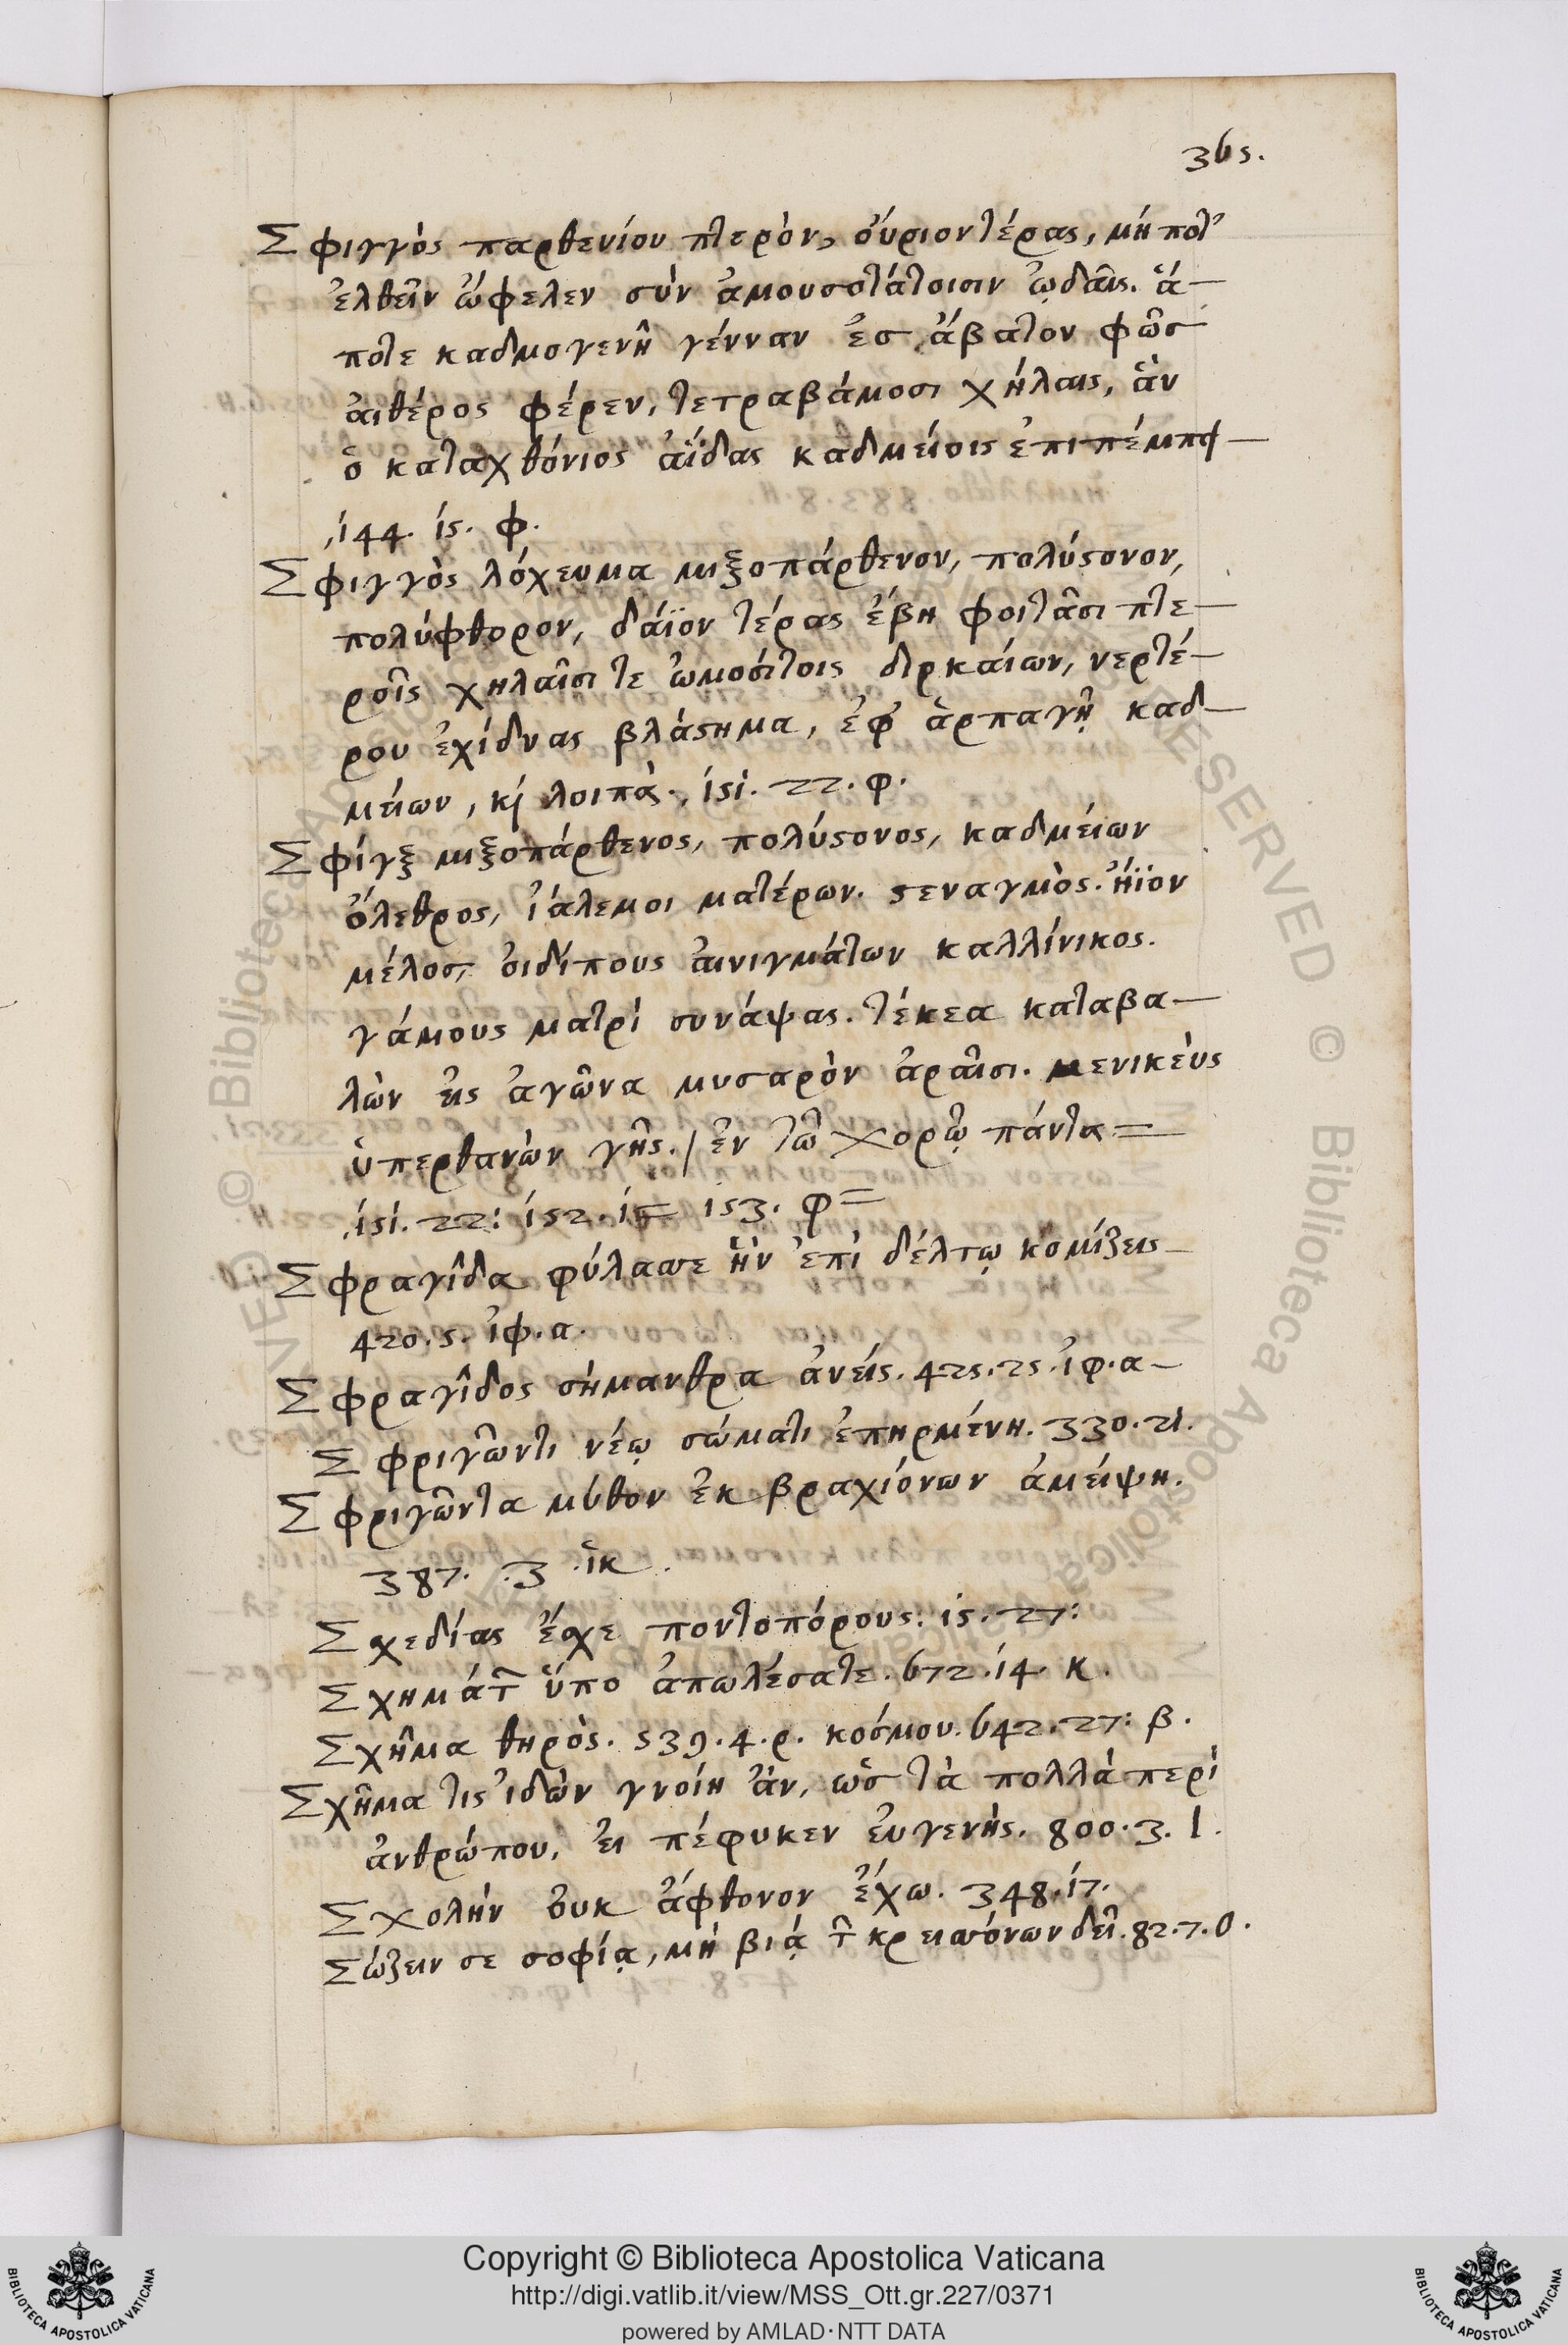 365.
Σφιγγὸς παρθενίου πτερὸν, ὄυριον τέρας, μή ποτ'
ἐλθεῖν ὤφελεν σὺν ἀμουσοτάτοισιν ᾠδαῖς. ἅ—
ποτε καδμογενῆ γένναν ἐσ ἄβατον φῶσ
ἀιθέρος φέρεν, τετραβάμοσι χήλαις, ἃν
ὁ καταχθόνιος ἀΐδας καδμείοις ἐπιπέμπει—
,144. 15. φ.
Σφιγγὸς λόχευμα μιξοπάρθενον, πολύστονον,
πολύφθορον, δάϊον τέρας ἔβη φοιτᾶσι πτε—
ροῖς χηλαῖσι τε ὠμοσίτοις διρκαίων, νερτέ—
ρου ἐχίδνας βλάστημα, ἐφ' ἁρπαγῇ καδ—
μείων, κὶ λοιπὰ., 151. 22. φ.
Σφίγξ μιξοπάρθενος, πολύστονος, καδμείων
ὄλεθρος, ἰάλεμοι ματέρων. στεναγμὸς. ἤϊον
μέλος, ὀιδίπους ἀινιγμάτων καλλίνικος.
γάμους ματρὶ συνάψας. τέκεα καταβα—
λὼν εἰς ἀγῶνα μυσαρὸν ἀραῖσι. μενικεὺς
ὑπερθανὼν γῆς. / ἐν τῶ χορῷ πάντα =
,151. 22: 152. 15 153. φ=
Σφραγῖδα φύλασσε ἣν ἐπὶ δέλτῳ κομίζεις—
420. 5. ἰφ. α.
Σφραγῖδος σήμανθρα ἀνείς. 425. 25. ἰφ. α—
Σφριγῶντι νέῳ σώματι ἐπηρμένη. 330. 21.
Σφριγῶντα μύθον ἐκ βραχιόνων ἀμείψη.
387. 3. ἱκ.
Σχεδίας ἔσχε ποντοπόρους. 15. 27:
Σχημάτ͂ ὕπο ἀπωλέσατε. 672. 14. κ.
Σχῆμα θηρὸς. 539. 4. ρ. κόσμου. 642. 27: β.
Σχῆμα τις ἰδὼν γνοίη ἂν, ὡσ τὰ πολλὰ περὶ
ἀνθρώπου, ἐι πέφυκεν ἐυγενὴς. 800. 3. ι.
Σχολὴν ὀυκ ἄφθονον ἔχω. 348. 17.
Σώζειν σε σοφίᾳ, μὴ βιᾴ τ͂ κρεισσόνων δεῖ. 82. 7. ο.
Copyright © Biblioteca Apostolica Vaticana
http://digi.vatlib.it/view/MSS_Ott.gr.227/0371
powered by AMLAD·NTT DATA